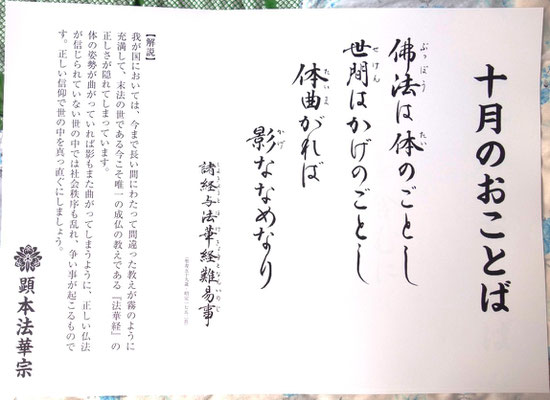 十月のおことば
佛法は体のごとし
世間はかげのごとし
体曲がれば
影ななめなり
諸経与法華経難易事
【解説】
我が国においては、今まで長い間にわたって間違った教えが霧のように
充満して、末法の世である今こそ唯一の成仏の教えである『法華経』の
正しさが隠れてしまっています。
体の姿勢が曲がっていれば影もまた曲がってしまうように、正しい仏法
が信じられていない世の中では社会秩序も乱れ、争い事が起こるもので
す。正しい信仰で世の中を真っ直ぐにしましょう。
顕本法華宗